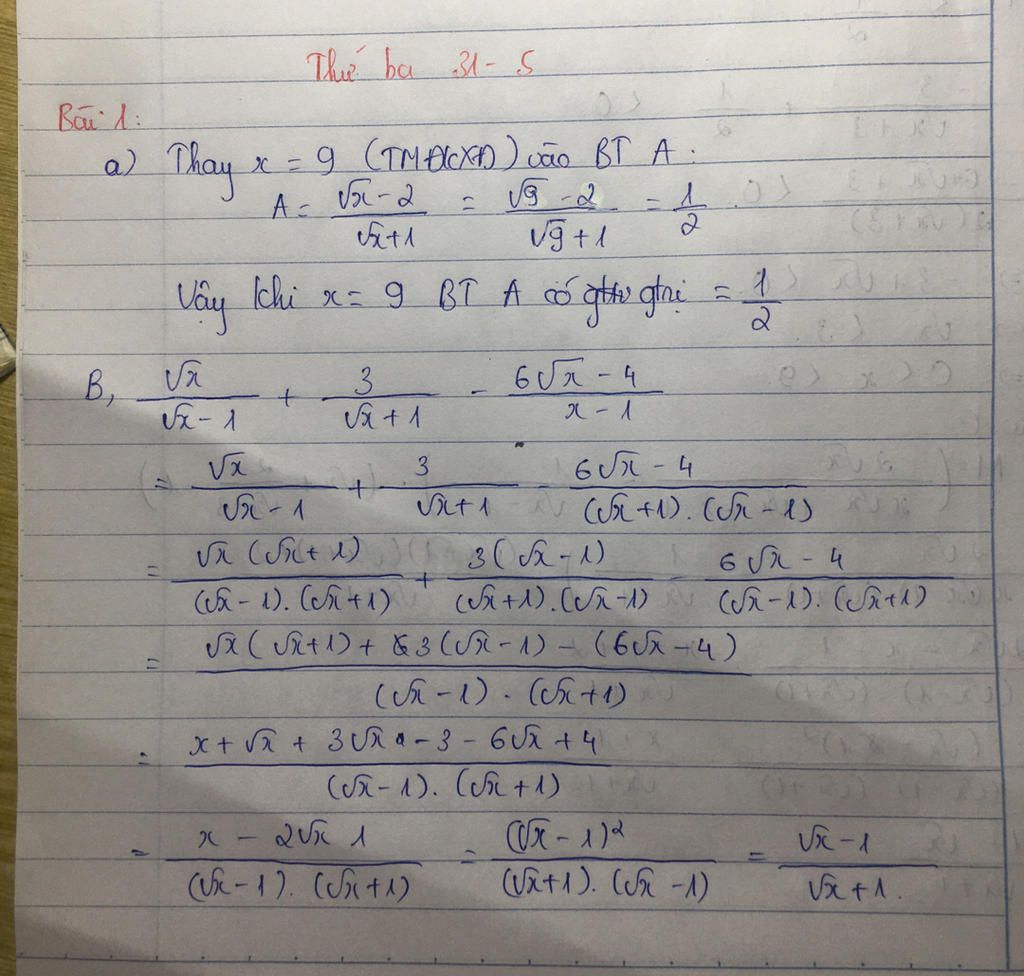 Thứ ba 31 - 5
Bài 1:
a) Thay x = 9 (TMĐKXĐ) vào BT A:
A = (√x - 2)/(√x + 1) = (√9 - 2)/(√9 + 1) = 1/2.
Vậy khi x = 9 BT A có gtrị = 1/2
B, √x/(√x - 1) + 3/(√x + 1) - (6√x - 4)/(x - 1)
= √x/(√x - 1) + 3/(√x + 1) - (6√x - 4)/((√x + 1).(√x - 1))
= √x(√x + 1)/((√x - 1).(√x + 1)) + 3(√x - 1)/((√x + 1).(√x - 1)) - (6√x - 4)/((√x - 1).(√x + 1))
= (√x(√x + 1) + 3(√x - 1) - (6√x - 4))/((√x - 1).(√x + 1))
= (x + √x + 3√x - 3 - 6√x + 4)/((√x - 1).(√x + 1))
= (x - 2√x 1)/((√x - 1).(√x + 1)) = (√x - 1)²/((√x + 1).(√x - 1)) = (√x - 1)/(√x + 1).